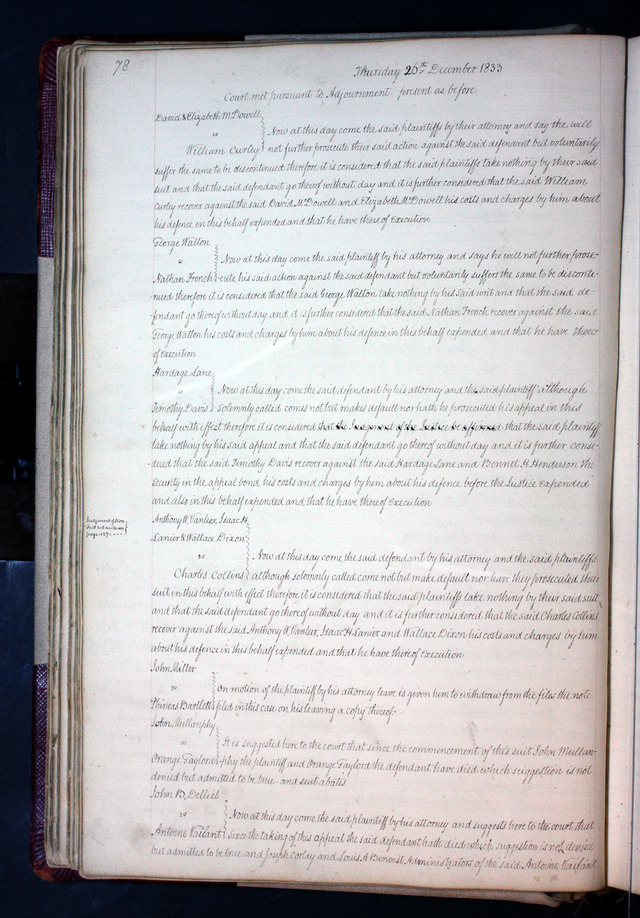 78
Thursday 26th December 1833
Court met pursuant to Adjournment present as before
David & Elizabeth McDowell
vs Now at this day come the said plaintiffs by their attorney and say the will
William Curley not further prosecute their said action against the said defendant but voluntarily
suffer the same to be discontinued therefore it is considered that the said plaintiffs take nothing by their said
suit and that the said defendant go thereof without day and it is further considered that the said William
Curley recover against the said David McDowell and Elizabeth McDowell his costs and charges by him about
his defence in this behalf expended and that he have thereof Execution
George Walton
vs Now at this day come the said plaintiff by his attorney and says he will not further prose-
Nathan French cute his said action against the said defendant but voluntarily suffers the same to be disconti-
nued therefore it is considered that the said George Walton take nothing by his said writ and that the said de-
fendant go thereof without day and it is further considered that the said Nathan French recover against the said
George Walton his costs and charges by him about his defence in this behalf expended and that he have there
of execution
Hardage Lane
vs Now at this day come the said defendant by his attorney and the said plaintiff although
Timothy Davis solemnly called comes not but makes default nor hath he prosecuted his appeal in this
behalf with effect therefore it is considered that the Judgement of the Justice be affirmed that the said plaintiff
take nothing by his said appeal and that the said defendant go thereof without day and it is further consi-
-dered that the said Timothy Davis recover against the said Hardage Lane and Bennet H. Henderson the
Security in the appeal bond his costs and charges by him about his defence before the Justice Expended
and also in this behalf expended and that he have thereof Execution
Judgement of Non
Suit set aside see
page 137
Anthony W. Vanlier, Isaac H.
Lanier & Wallace Dixon
vs Now at this day come the said defendant by his attorney and the said plaintiffs
Charles Collins although solemnly called come not but make default nor have they prosecuted their
suit in this behalf with effect therefore it is considered that the said plaintiffs take nothing by their said suit
and that the said defendant go thereof without day and it is further considered that the said Charles Collins
recover against the said Anthony W. Vanlier, Isaac H. Lanier and Wallace Dixon his costs and charges by him
about his defence in this behalf Expended and that he have thereof Execution
John Miller
vs On motion of the plaintiff by his attorney leave is given him to withdraw from the files the note
Phineas Bartlett filed in this case on his leaving a copy thereof
John Mullanphy
vs It is suggested here to the court that since the commencement of this suit John Mullan-
Orange Taylord -phy the plaintiff and Orange Taylord the defendant have died which suggestion is not
denied but admitted to be true and suit abates
John B. Delliel
vs Now at this day come the said plaintiff by his attorney and suggests here to the court that
Antoine Vailant Since the taking of this appeal the said defendant hath died which suggestion is not denied
but admitted to be true and Joseph Corlay and Louis A Benoist Administrators of the said Antoine Vailant